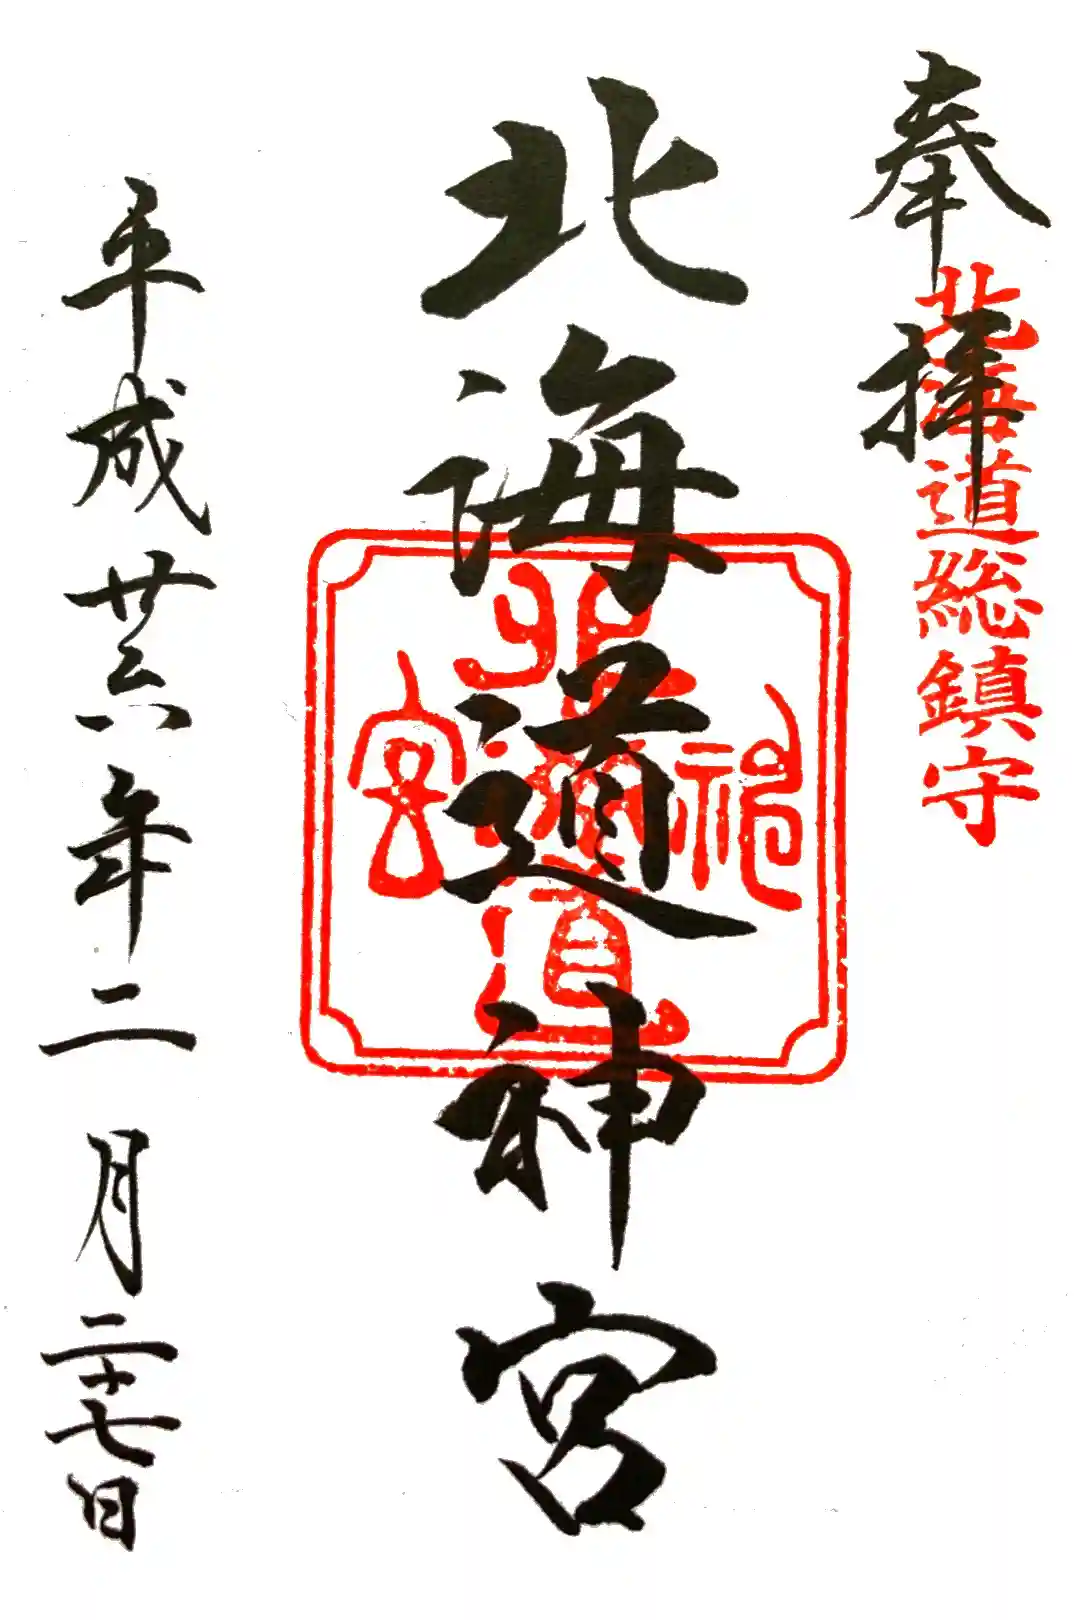 奉拝
北海道総鎮守
北海道神宮
北海道神宮
平成廿六年二月二十七日